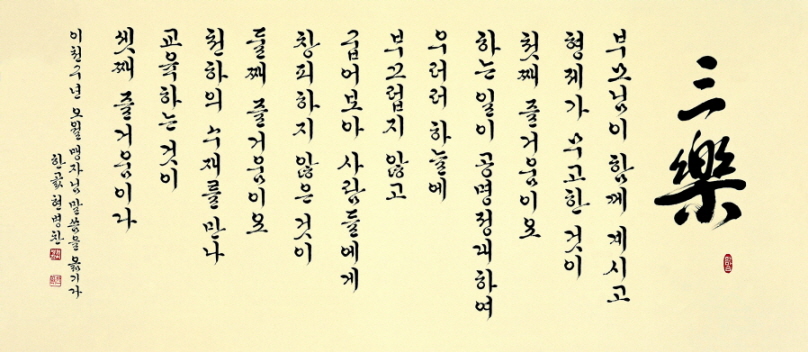 三樂
부모님이 함께 계시고
형제가 무고한 것이
첫째 즐거움이요
하는 일이 공명정대하여
우러러 하늘에
부끄럽지 않고
굽어보아 사람들에게
창피하지 않은 것이
둘째 즐거움이요
천하의 수재를 만나
교육하는 것이
셋째 즐거움이다
이천구년 오월 맹자님 말씀을 옮기다
한곬 현병찬